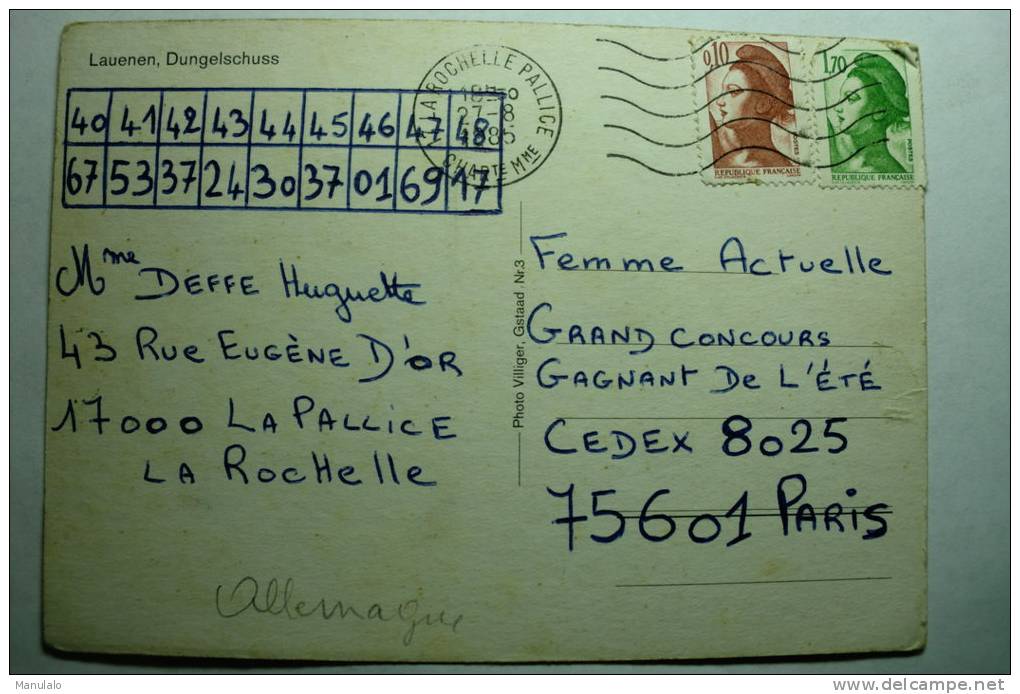 Lauenen, Dungelschuss
40 41 42 43 44 45 46 47 48
67 53 37 24 30 37 01 69 17
Mme DEFFE Huguette
43 Rue EUGÈNE D'OR
17000 LA PALLICE
LA ROCHelle
Allemagne
LA ROCHELLE PALLICE
27-8
1985
CHARTE Mme
0,10
REPUBLIQUE FRANÇAISE
1,70
POSTES
REPUBLIQUE FRANÇAISE
Photo Villiger, Gstaad Nr.3
Femme Actuelle
GRAND CONCOURS
GAGNANT De L'ÉTÉ
CEDEX 8025
75601 PARIS
Manulalo
delcampe.net